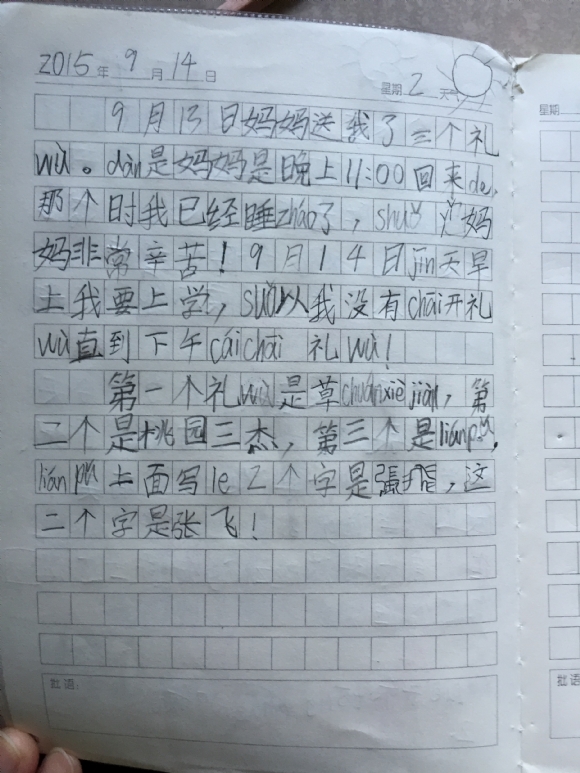 2015年9月14日
星期2天气
9月13日妈妈送我了三个礼
wù。dàn是妈妈是晚上11:00回来de,
那个时我已经睡zháo了，shuō 妈
妈非常辛苦！9月14日jīn天早
上我要上学，suǒ以我没有chāi开礼
wù直到下午cáichāi礼wù！
第一个礼wù是草chuánxièjiàn，第
二个是桃园三杰，第三个是liánpǔ，
liánpǔ上面写le2个字是張飛，这
二个字是张飞！
批语：
星期
批语